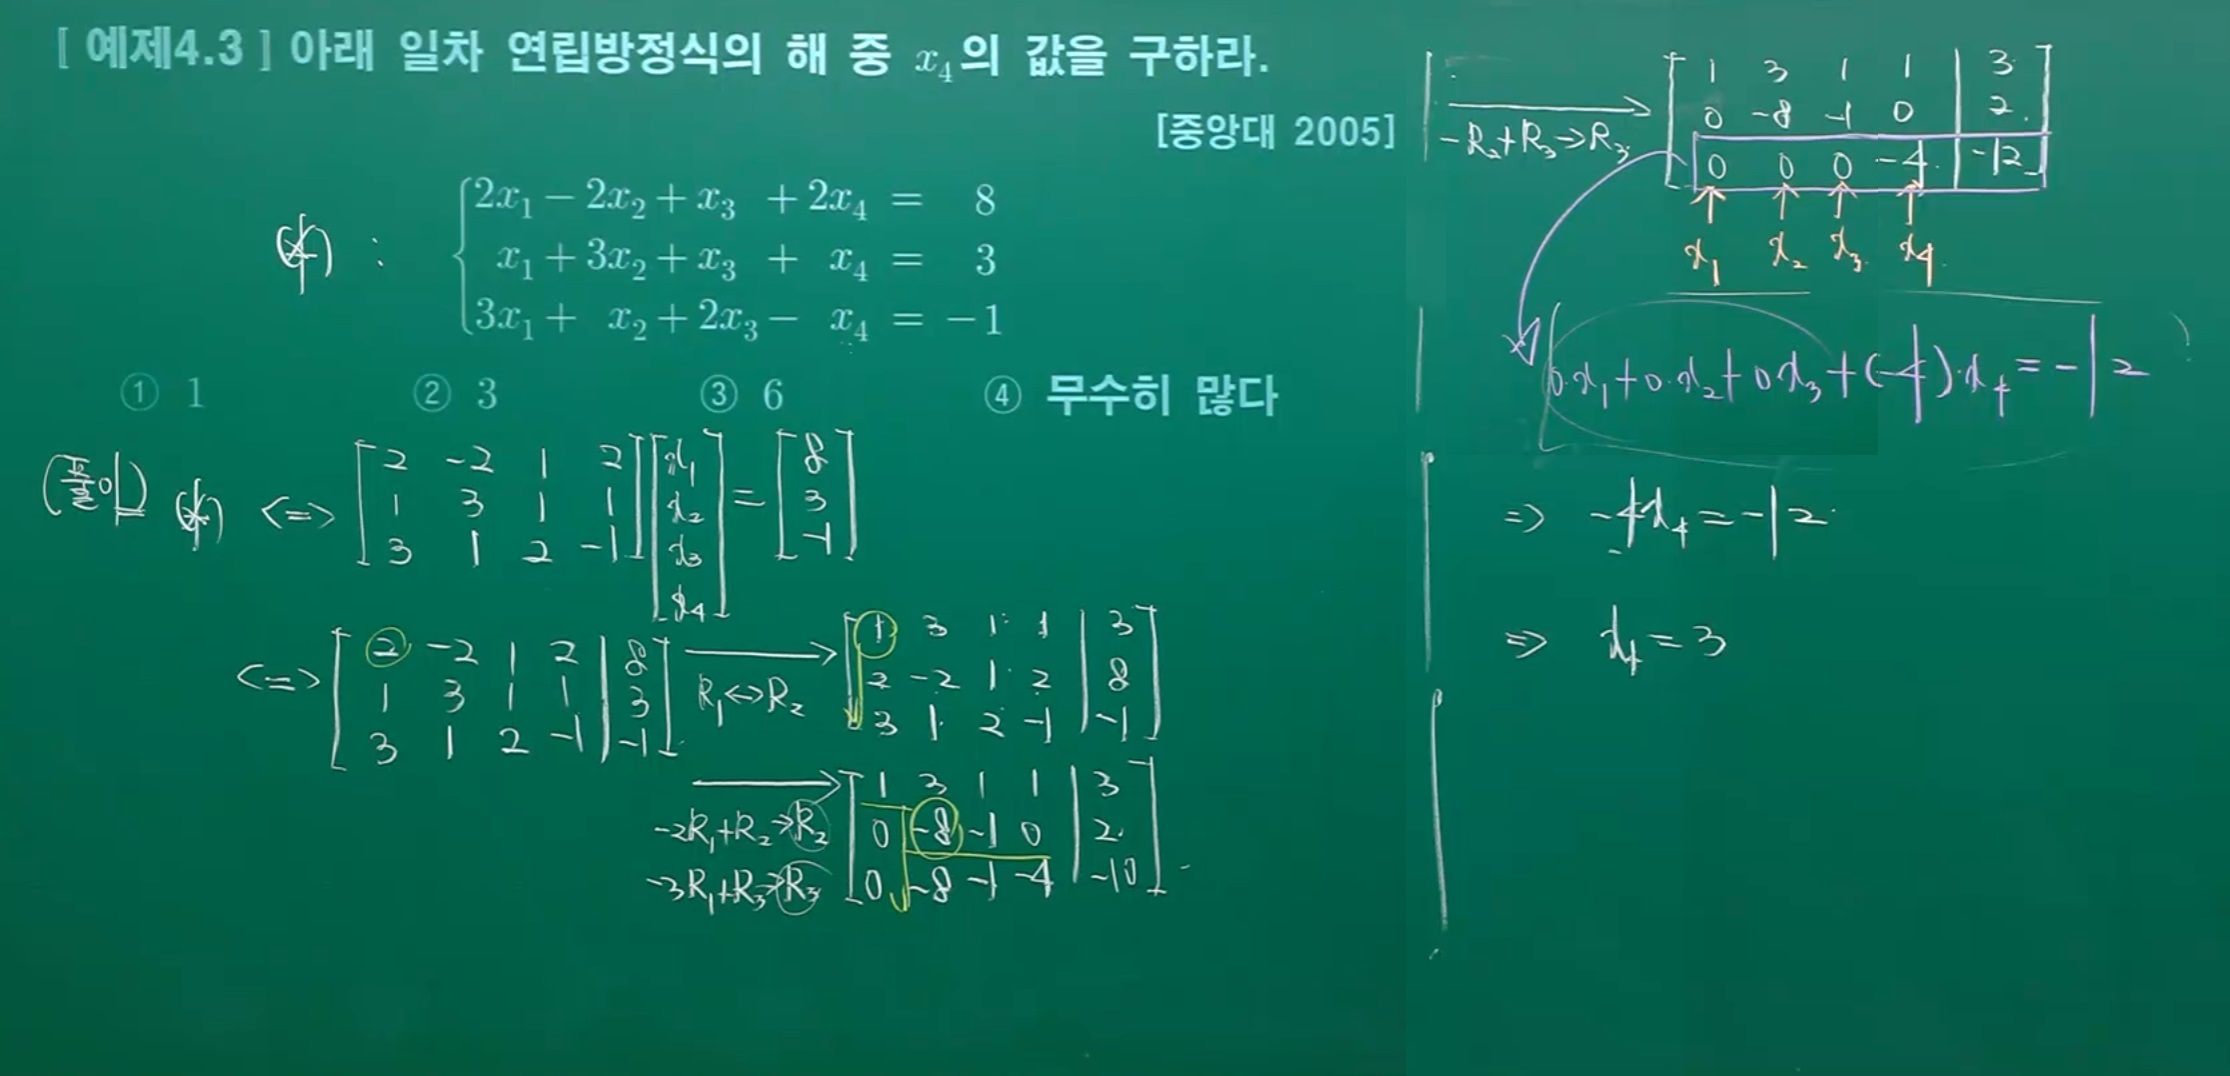 [ 예제4.3 ] 아래 일차 연립방정식의 해 중 x₄의 값을 구하라.
[중앙대 2005]
(*) :
2x₁ − 2x₂ + x₃ + 2x₄ = 8
x₁ + 3x₂ + x₃ + x₄ = 3
3x₁ + x₂ + 2x₃ − x₄ = −1
① 1 ② 3 ③ 6 ④ 무수히 많다
(풀이) (*) <=> [2 -2 1 2] [x₁] = [8]
[1 3 1 1] [x₂] [3]
[3 1 2 -1] [x₃] [-1]
[x₄]
<=> [2 -2 1 2 | 8]
[1 3 1 1 | 3]
[3 1 2 -1 | -1]
→ R₁<->R₂
[1 3 1 1 | 3]
[2 -2 1 2 | 8]
[3 1 2 -1 | -1]
→
-2R₁+R₂→R₂
-3R₁+R₃→R₃
[1 3 1 1 | 3]
[0 -8 -1 0 | 2]
[0 -8 -1 -4 | -10]
→ -R₂+R₃→R₃
[1 3 1 1 | 3]
[0 -8 -1 0 | 2]
[0 0 0 -4 | -12]
↑ ↑ ↑ ↑
x₁ x₂ x₃ x₄
0·x₁+0·x₂+0·x₃+(-4)·x₄=-12
=> -4x₄=-12
=> x₄=3